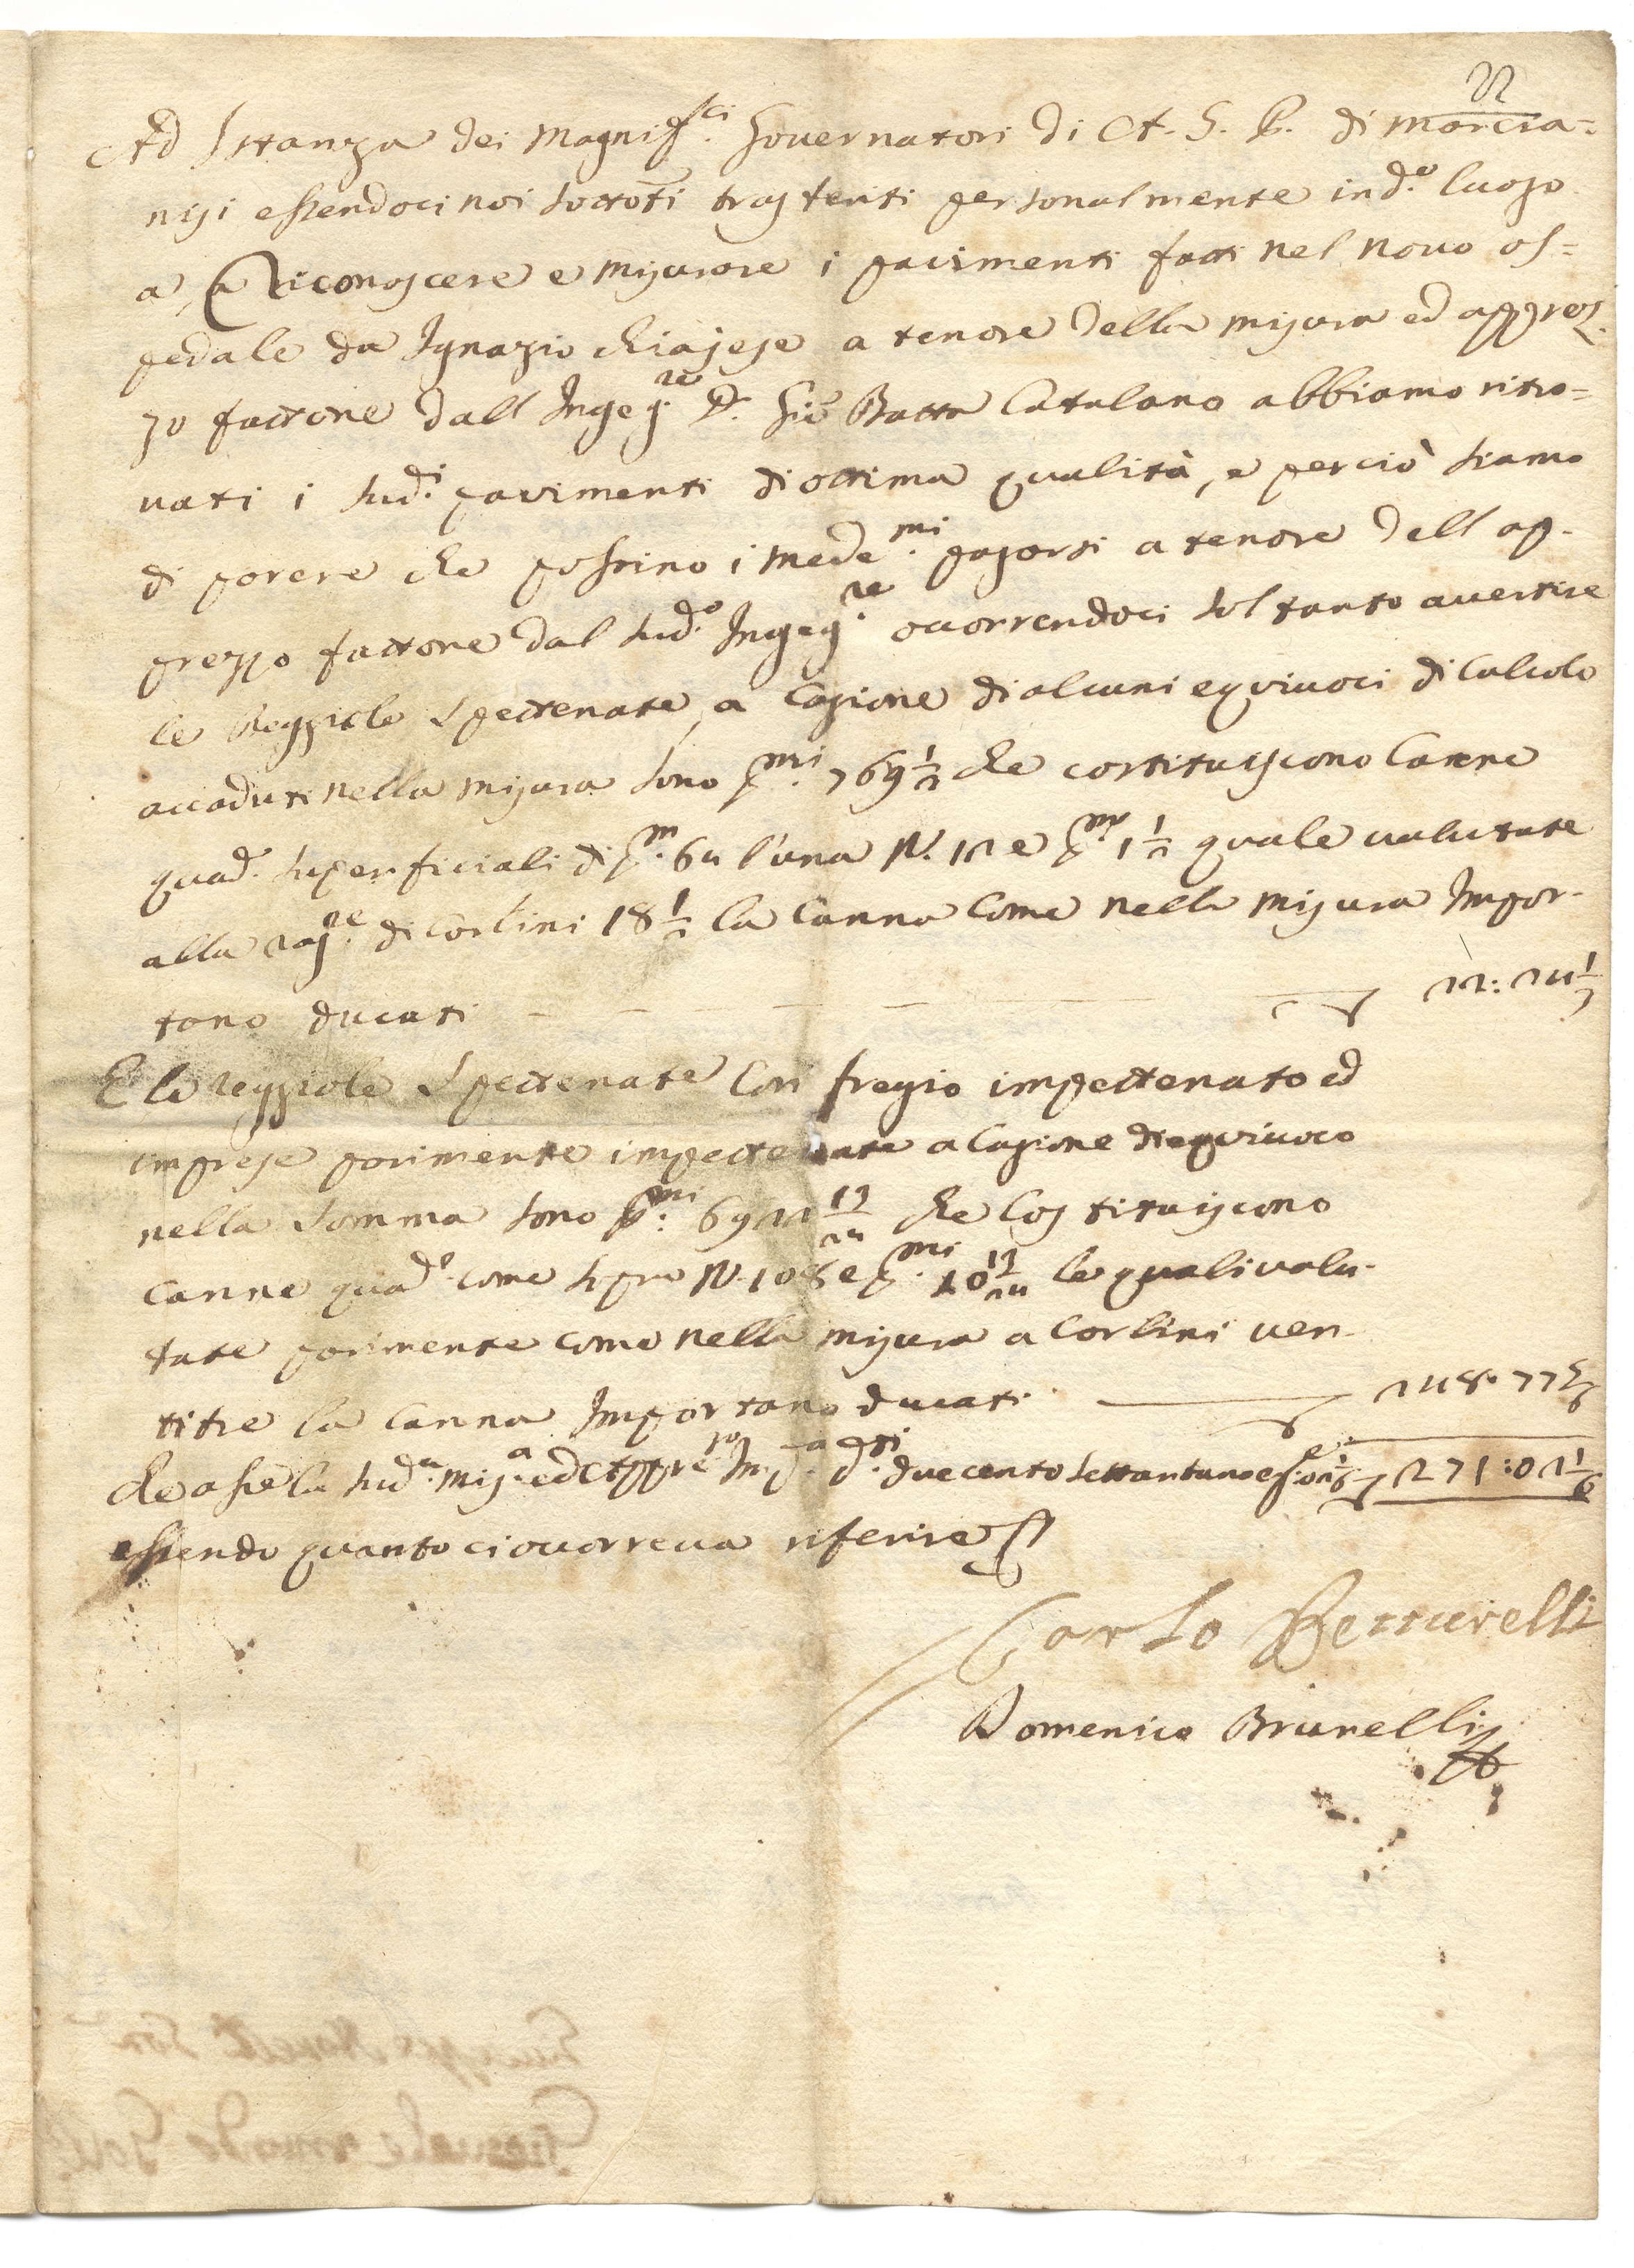 22
Ad Istanza dei Magnif.ci Governatori di A. G. P. di Marcia=
nisi essendoci noi sottoti trasferiti personalmente in d.o luogo
a riconoscere e misurare i pavimenti fatti nel novo os=
pedale da Ignazio Chiajese a tenore della misura ed apprez.
zo fattone dall Ingeg.re D. Gio Batta Catalano abbiamo ritro=
vati i sud.i pavimenti di ottima qualità, e perciò siamo
di parere che possino i mede.mi pagarsi a tenore dell ap-
prezzo fattone dal sud.o Ingeg.re occorrendoci soltanto avertire
le Reggiole spettenate, a cagione di alcuni equivoci di calcolo
accaduti nella misura sono p.mi 769 1/2 che costituiscono Canne
quad. superficiali di p.mi 64 l'una N. 12 e p.mi 1 1/2 quale valutate
alla rag.e di Carlini 18 1/2 la Canna come nella misura Impor-
tano ducati 22: 24 1/2
E le reggiole spettenate con fregio impettenato ed
imprese parimente impettenate a cagione di equivoco
nella somma sono p.mi 6922 13/24 che costituiscono
canne quad.e come sopra N. 108 e p.mi 10 13/24 le quali valu-
tate parimente come nella misura a Carlini ven-
titre la canna Importano ducati 248. 77 2/3
che assie la sud.a mis.a ed Appre.zo Imp.a d.ti duecento settantuno e g. 02 1/6 271: 02 1/6
essendo quanto ci occorreva riferire
Carlo
Domenico Brunelli